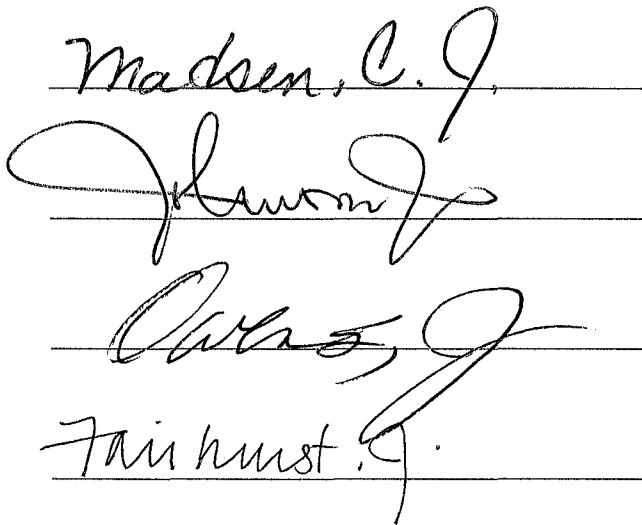 Madsen, C. J.
Johnson J.
Owens, J
Fairhurst, J.